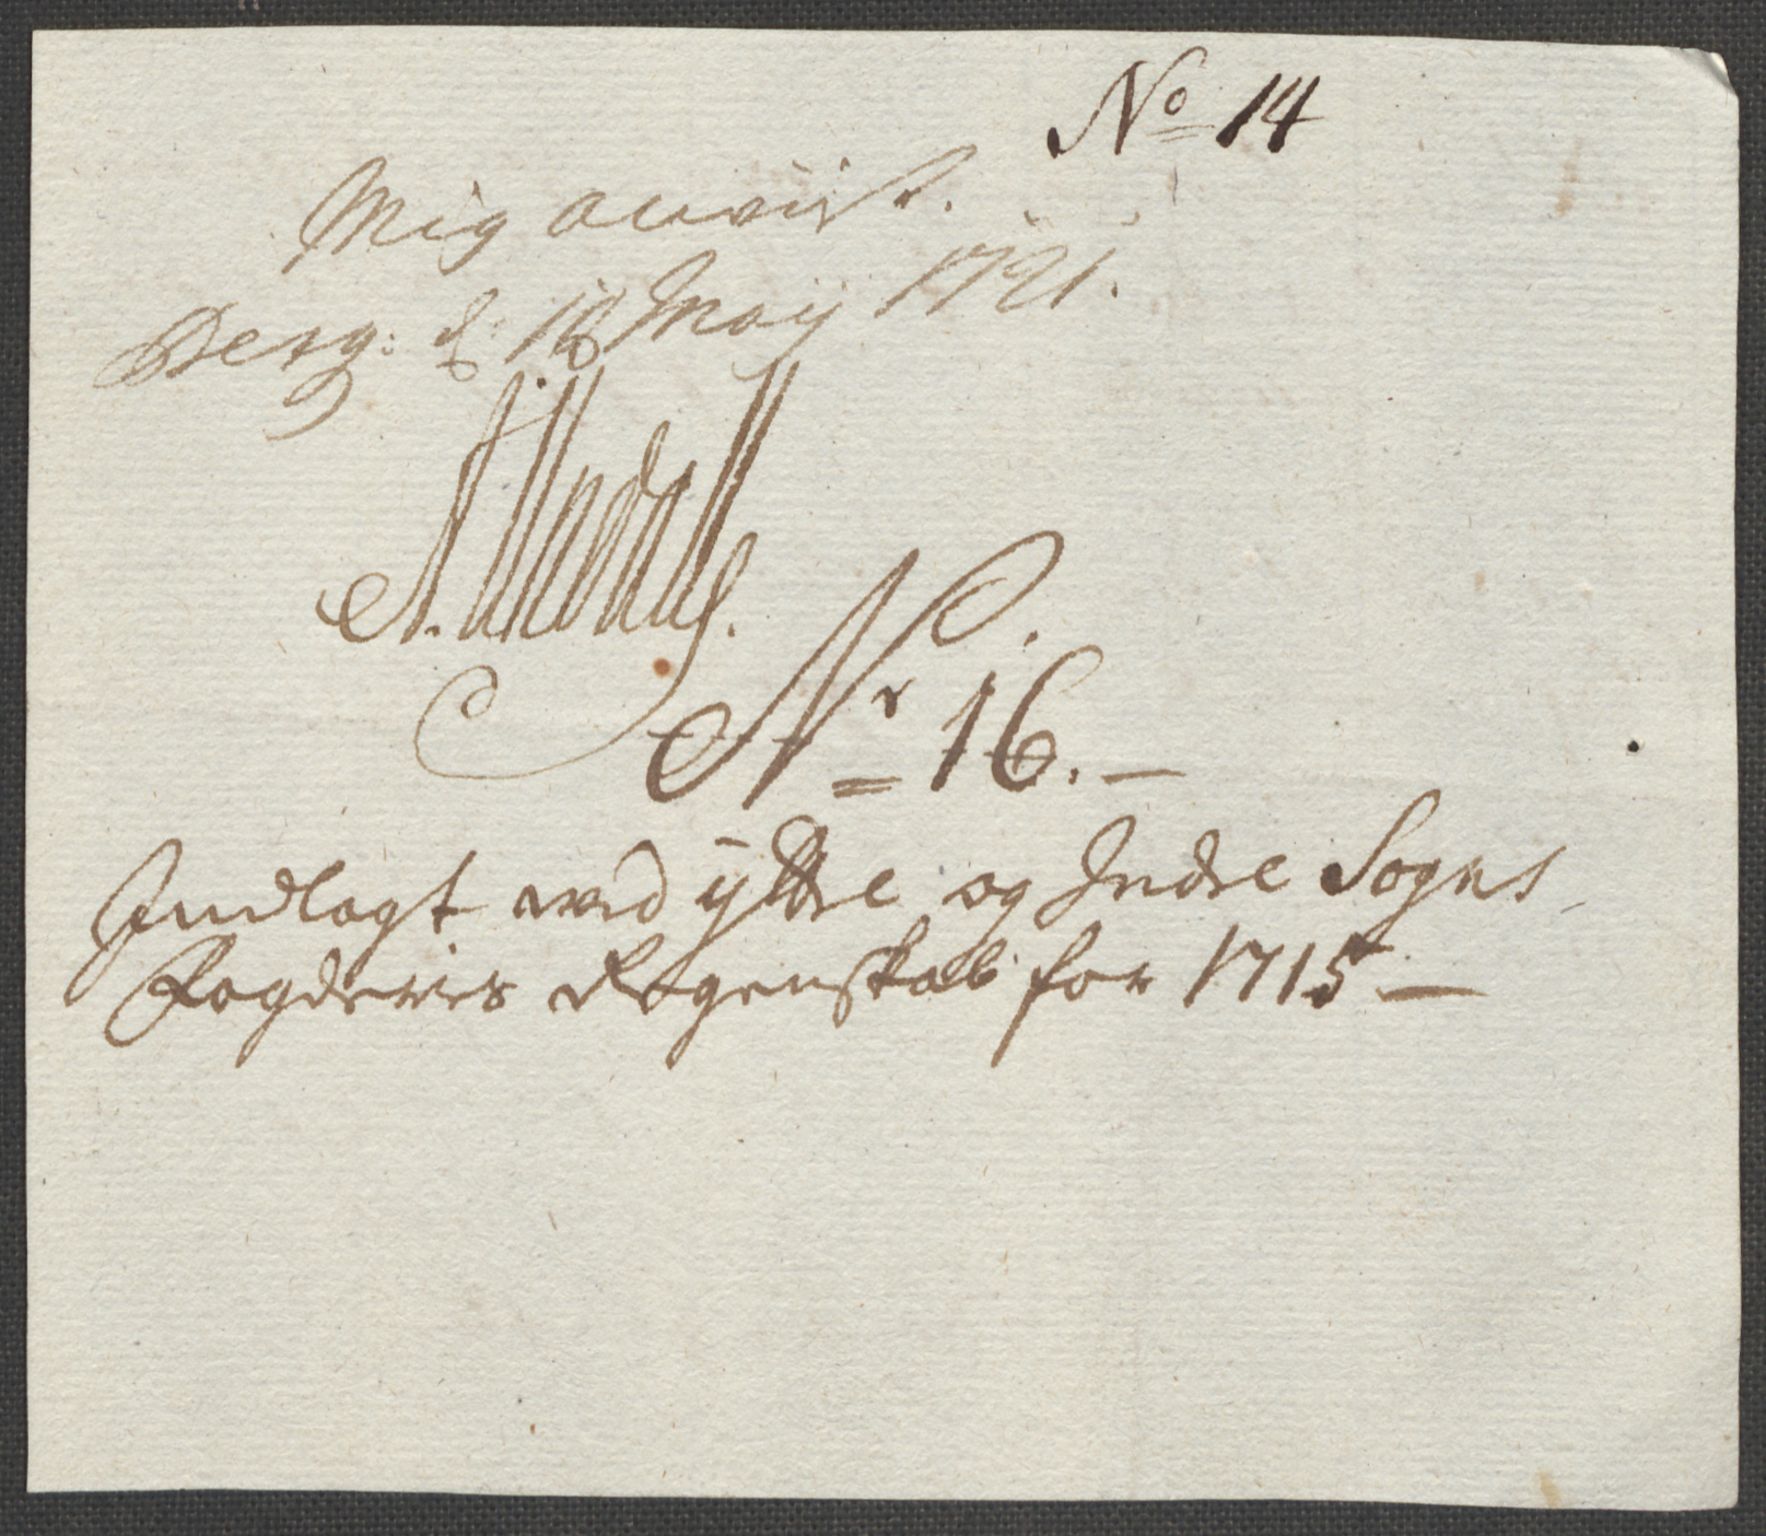 No 14
Mig anvist.
Berg: d: 18 Maij 1721.
Nr 16.—
Indlagt ved ÿttre og Indre Sogns
Fogderies Regenskab for 1715—